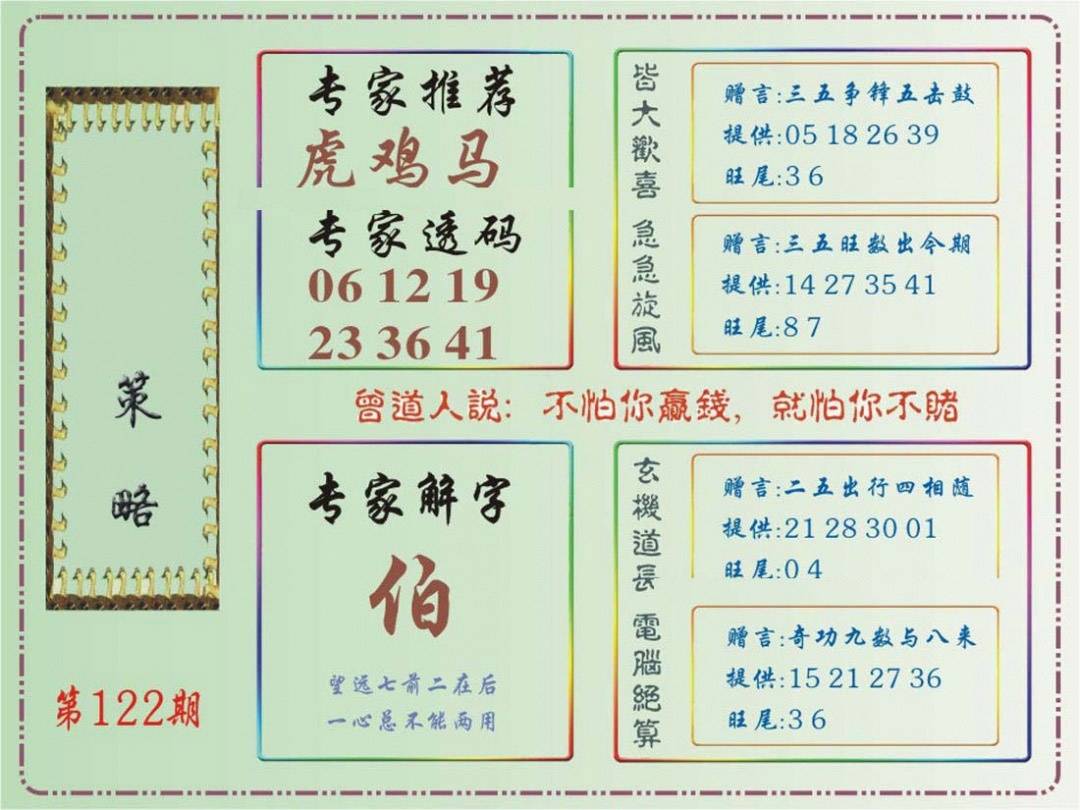 策略
第122期
专家推荐
虎鸡马
专家透码
06 12 19
23 36 41
皆大歡喜
赠言:三五争锋五击鼓
提供:05 18 26 39
旺尾:3 6
急急旋風
赠言:三五旺数出今期
提供:14 27 35 41
旺尾:8 7
曾道人説：不怕你贏錢，就怕你不賭
专家解字
伯
望远七前二在后
一心总不能两用
玄機道長
赠言:二五出行四相随
提供:21 28 30 01
旺尾:0 4
電腦絕算
赠言:奇功九数与八来
提供:15 21 27 36
旺尾:3 6